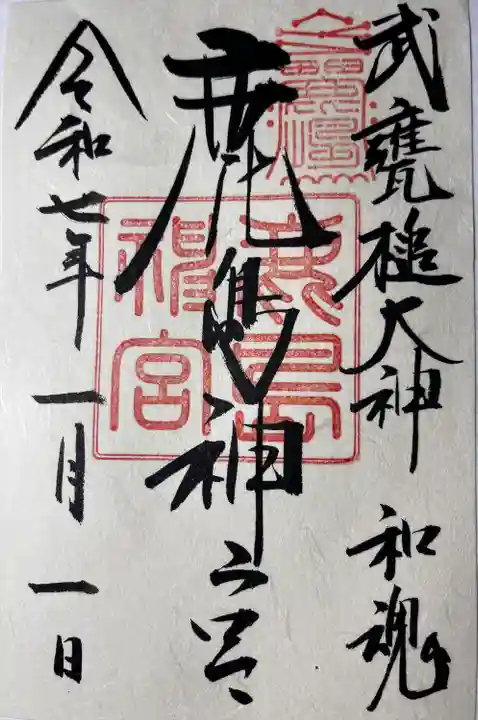 武甕槌大神 和魂
鹿島神宮
令和七年 一月 一日
鹿島
神宮